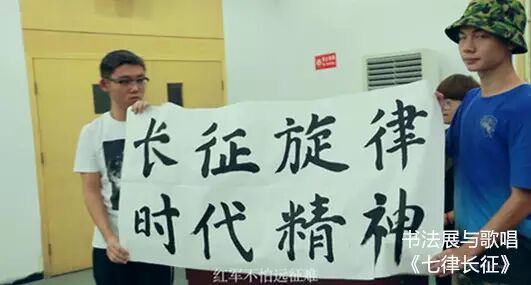 长征旋律
时代精神
书法展与歌唱
《七律长征》
红军不怕远征难